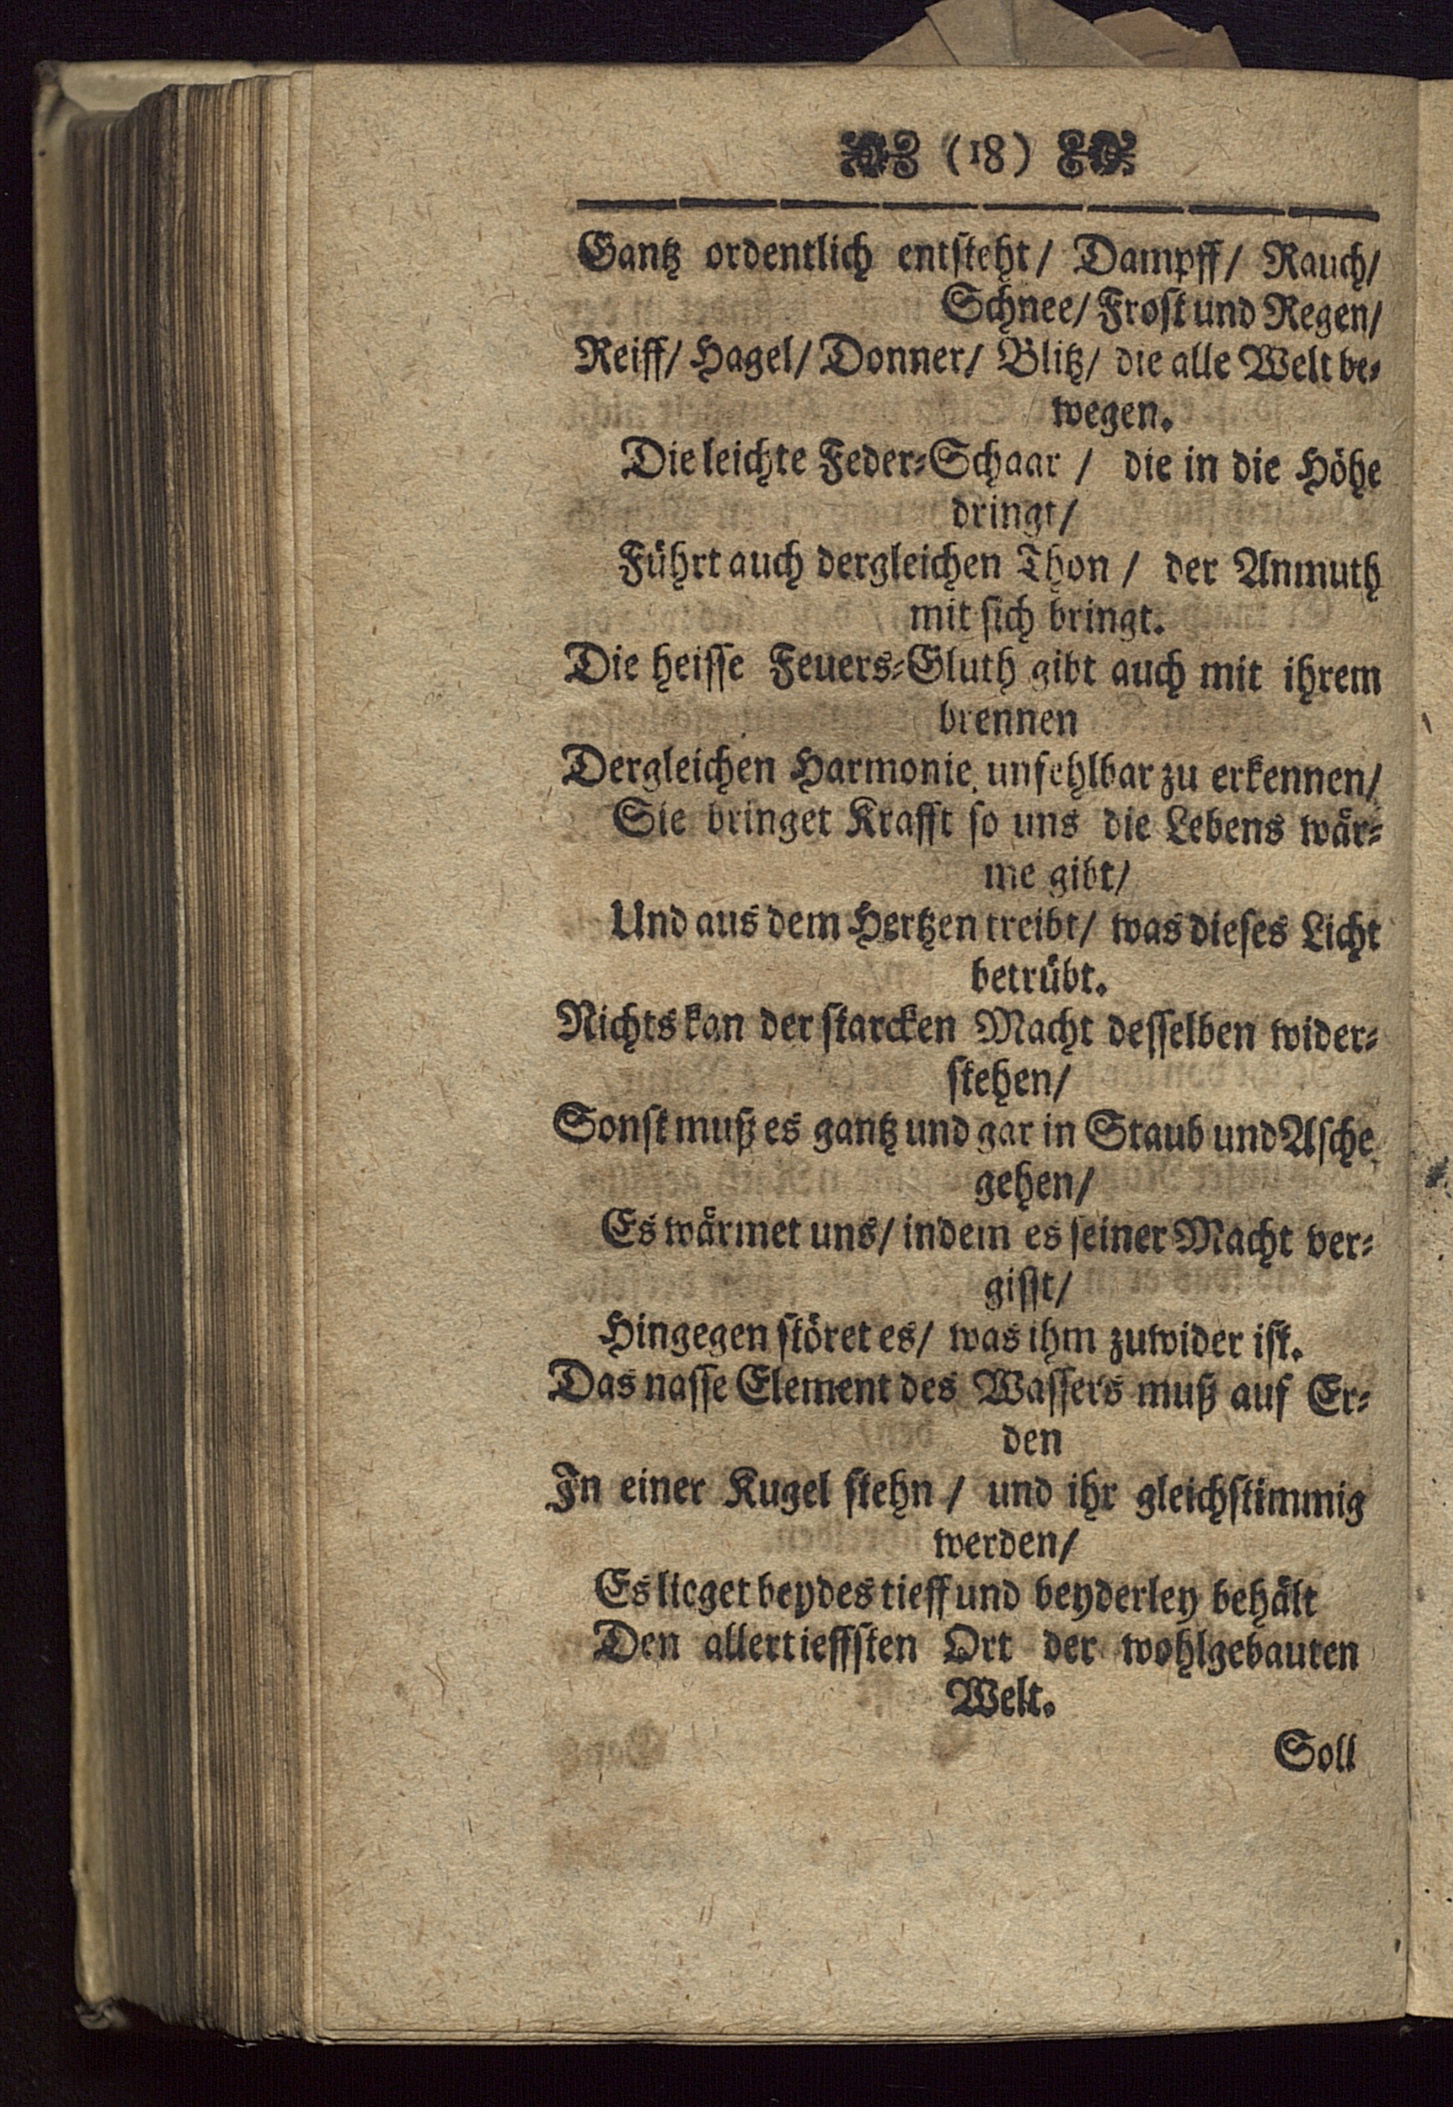 (18)
Gantz ordentlich entsteht/ Dampff/ Rauch/
Schnee/ Frost und Regen/
Reiff/ Hagel/ Donner/ Blitz/ die alle Welt be-
wegen.
Die leichte Feder-Schaar / die in die Höhe
dringt/
Führt auch dergleichen Thon / der Anmuth
mit sich bringt.
Die heisse Feuers-Gluth gibt auch mit ihrem
brennen
Dergleichen Harmonie unfehlbar zu erkennen/
Sie bringet Krafft so uns die Lebens wär-
me gibt/
Und aus dem Hertzen treibt/ was dieses Licht
betrübt.
Nichts kan der starcken Macht desselben wider-
stehen/
Sonst muß es gantz und gar in Staub und Asche
gehen/
Es wärmet uns/ indem es seiner Macht ver-
gisst/
Hingegen störet es/ was ihm zuwider ist.
Das nasse Element des Wassers muß auf Er-
den
In einer Kugel stehn / und ihr gleichstimmig
werden/
Es lieget beydes tieff und beyderley behält
Den allertieffsten Ort der wohlgebauten
Welt.
Soll